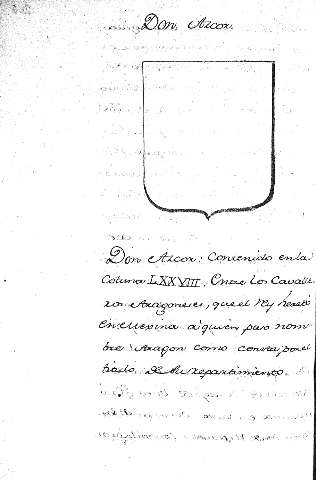 Don, Azcor.
Don Azcor: Contenido en la
Coluna LXXVIII, Entre los Cavalle
ros Aragoneses, que el Rey heredó
en a quien puso nom
bre Aragon como consta por el
de su repartimiento.